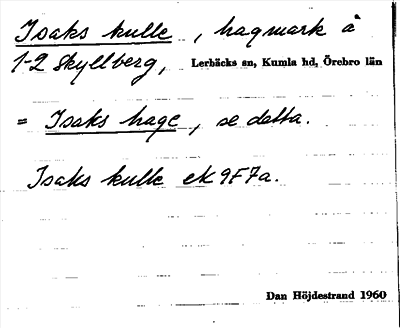 Isaks kulle, hagmark å
1-2 Skyllberg, Lerbäcks sn, Kumla hd, Örebro län
= Isaks hage, se detta.
Isaks kulle ek 9F7a.
Dan Höjdestrand 1960